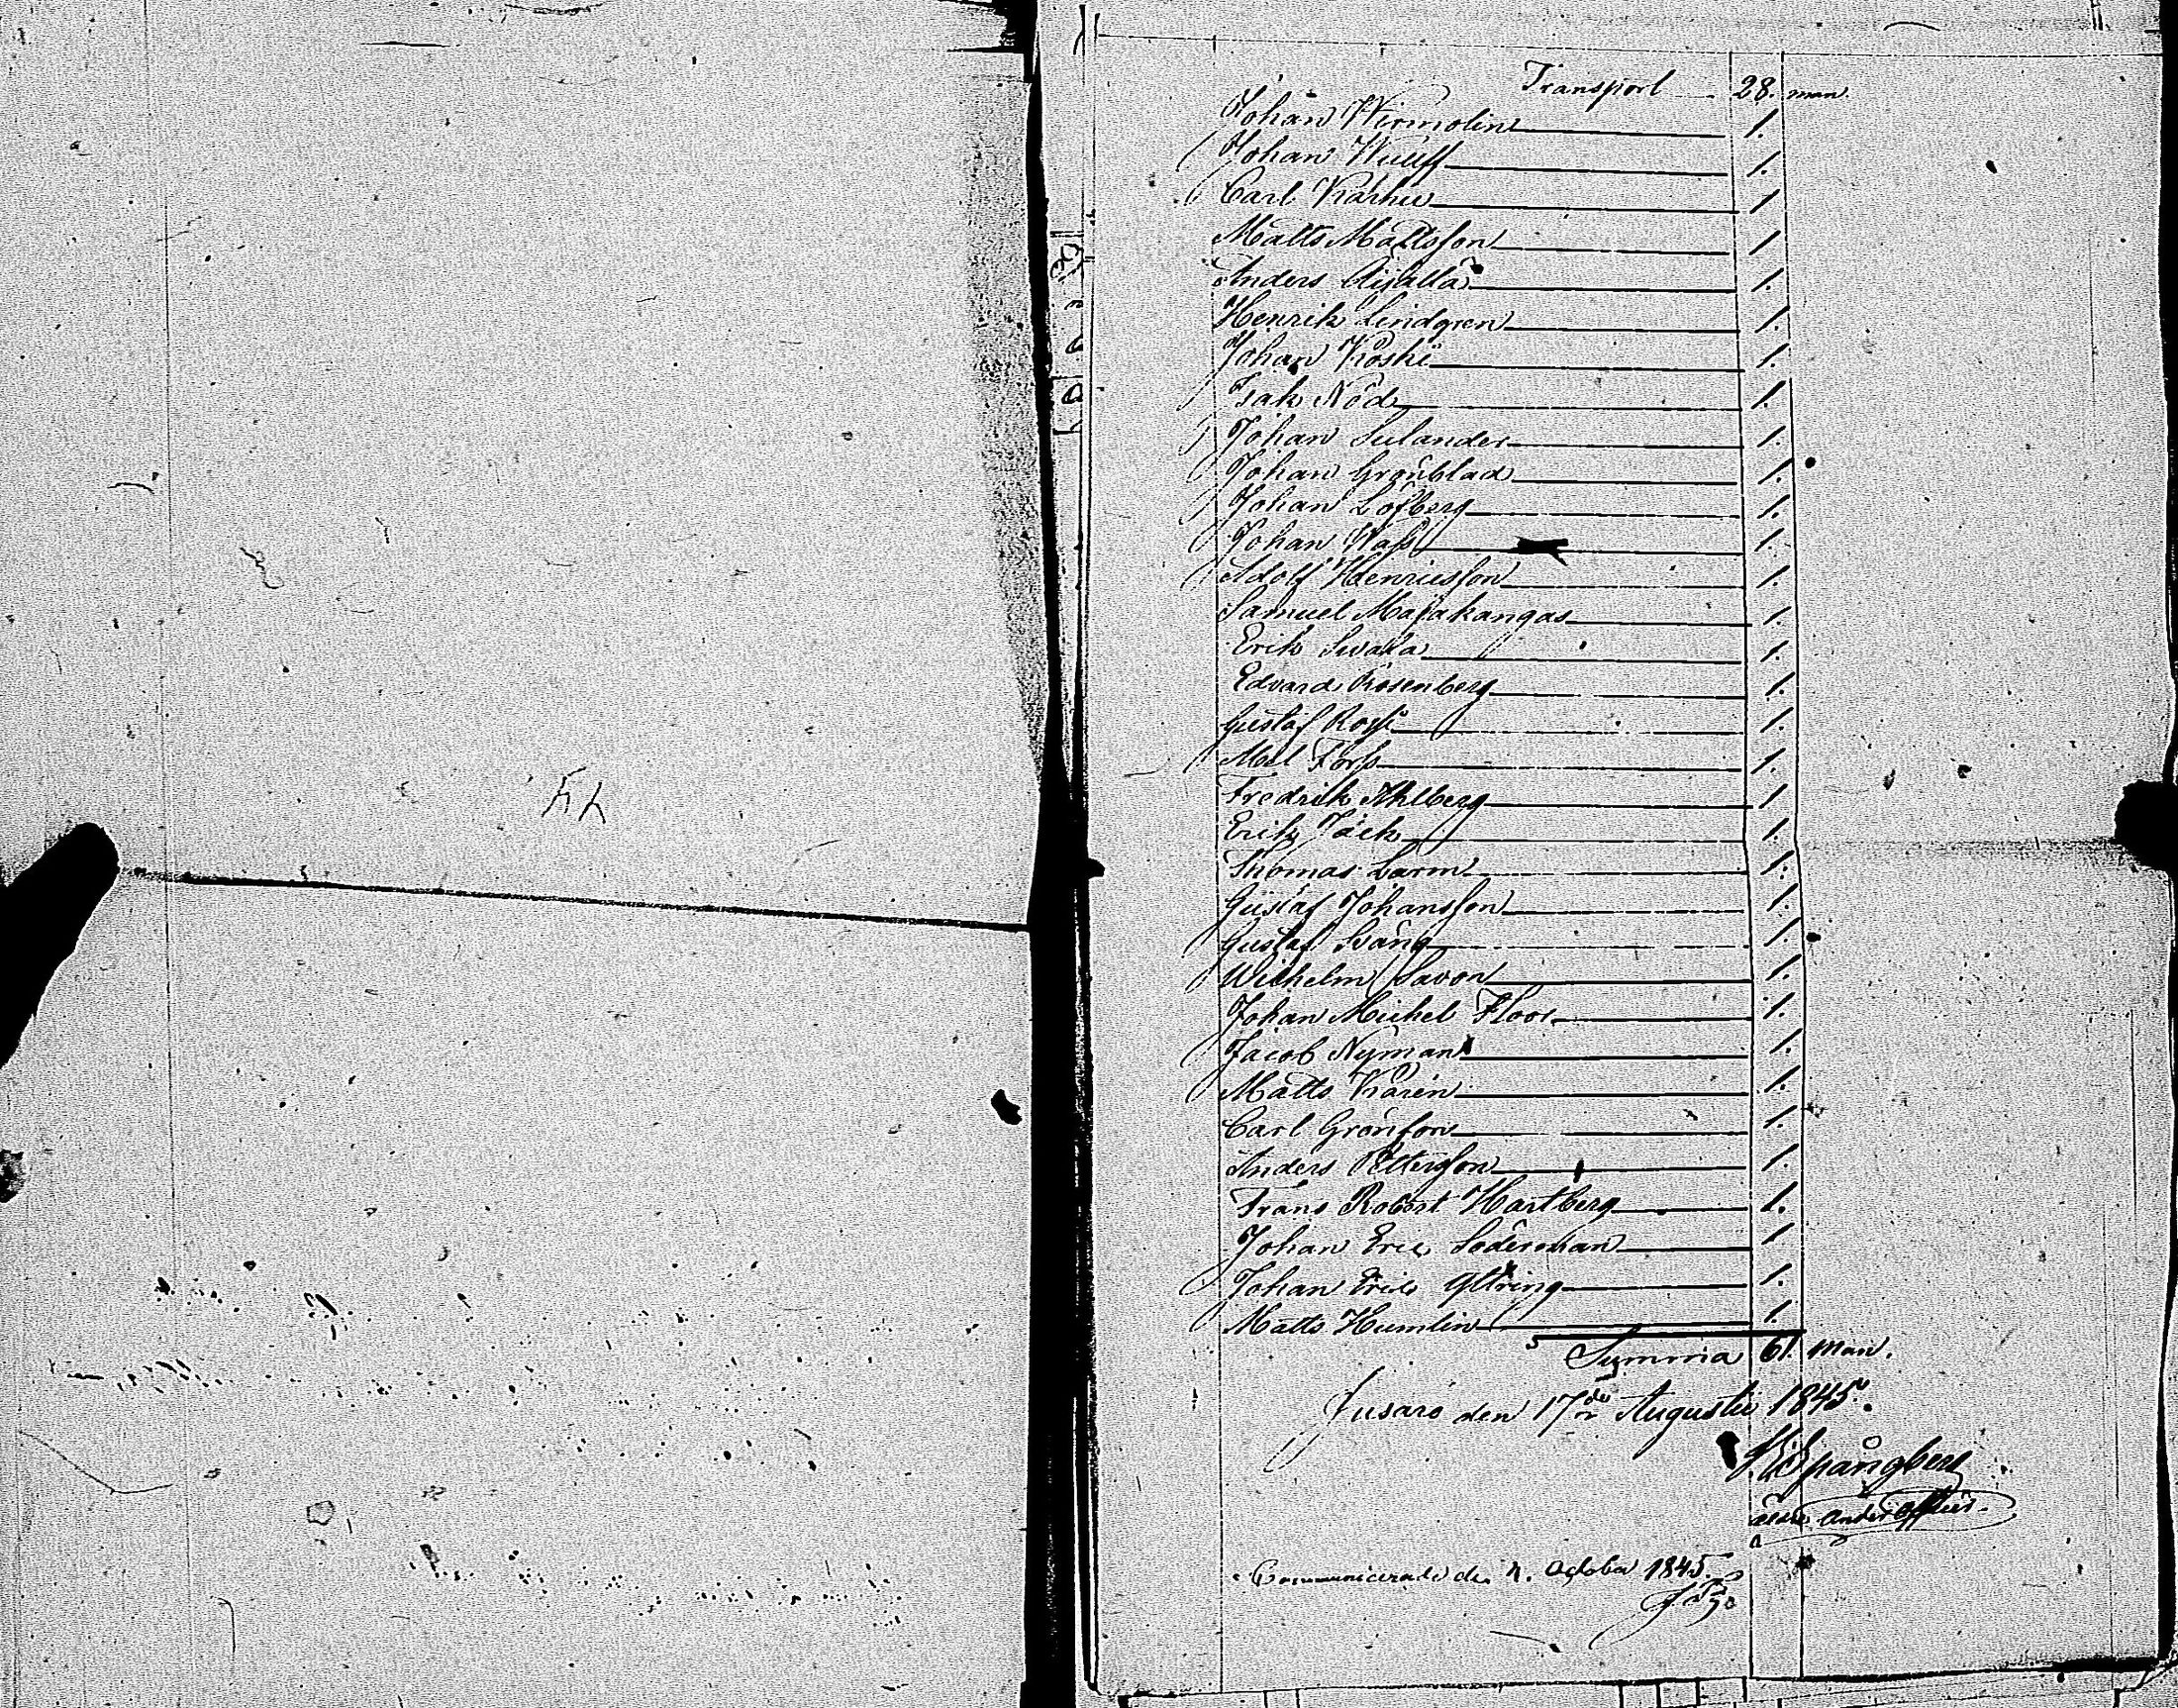 44
Transport 28. man.
Johan Wirmolin 1.
Johan Wulff 1.
Carl Karhu 1.
Matts Mattsson 1.
Anders 1.
Henrik Lindgren 1.
Johan Koski 1.
Isak Nöd 1.
Johan Sulander 1.
Johan Grönblad 1.
Johan Löfberg 1.
Johan Wass 1.
Adolf Henricsson 1.
Samuel Majakangas 1.
Erik 1.
Edvard Rosenberg 1.
Gustaf Rosss 1.
Mel Forss 1.
Fredrik Ahlberg 1.
Erik Jäck 1.
Thomas Larm 1.
Gustaf Johansson 1.
Gustaf Sväng 1.
Wilhelm Savon 1.
Johan Michel Floor 1.
Jacob Nyman 1.
Matts Karén 1.
Carl Grönfors 1.
Anders Pettersson 1.
Frans Robert Hartberg 1.
Johan Eric Söderman 1.
Johan Eric Yllring 1.
Matts Humlin 1.
Summa 61. man.
Jusarö den 17de Augusti 1845.
Spångberg
Communicerade den October 1845.